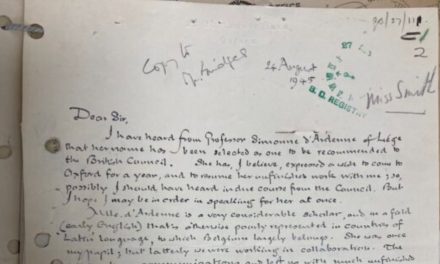 90/27/
1
2
Copy to
Mr Bridges
24 August
1945
B.C. REGISTRY
Miss Smith
Dear Sir,
I have heard from Professor Simonne d'Ardenne of Liège
that her name has been selected as one to be recommended to
the British Council. She has, I believe, expressed a wish to come to
Oxford for a year, and to resume her unfinished work with me; so,
possibly I should have heard in due course from the Council. But
I hope I may be in order in speaking for her at once.
Mlle. d'Ardenne is a very considerable scholar, and in a field
(early English) that is otherwise poorly represented in countries of
Latin language, to which Belgium largely belongs. She was once
my pupil; but latterly we were working in collaboration. The
communications and left us with much unfinished